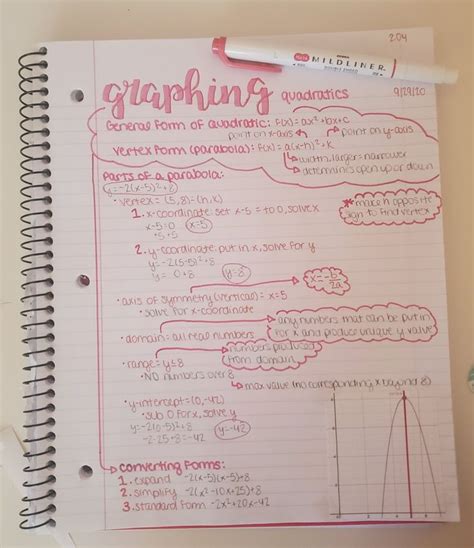 2.04
MILDLINER
graphing quadratics
9/29/20
General form of quadratic: f(x) = ax²+bx+c
point on x-axis point on y-axis
vertex form (parabola): f(x) = a(x-h)²+k
width, larger = narrower
determines open up or down
parts of a parabola:
y=-2(x-5)²+8
• vertex = (5,8) = (h,k)
* make h opposite
sign to find vertex
1. x-coordinate: set x-5 = to 0, solve x
x-5=0 x=5
+5 +5
2. y-coordinate: put in x, solve for y
y=-2(5-5)²+8
y= 0+8 y=8
x = -b/2a
• axis of symmetry (vertical): x=5
• solve for x-coordinate
any numbers that can be put in
for x and produce unique y value
• domain: all real numbers
numbers produced
from domain
• range = y≤8
• NO numbers over 8
max value (no corresponding x beyond 8)
• y-intercept = (0,-42)
• sub 0 for x, solve y
y=-2(0-5)²+8
-2·25+8=-42 y=-42
converting forms:
1. expand -2(x-5)(x-5)+8
2. simplify -2(x²-10x+25)+8
3. standard form -2x²+20x-42